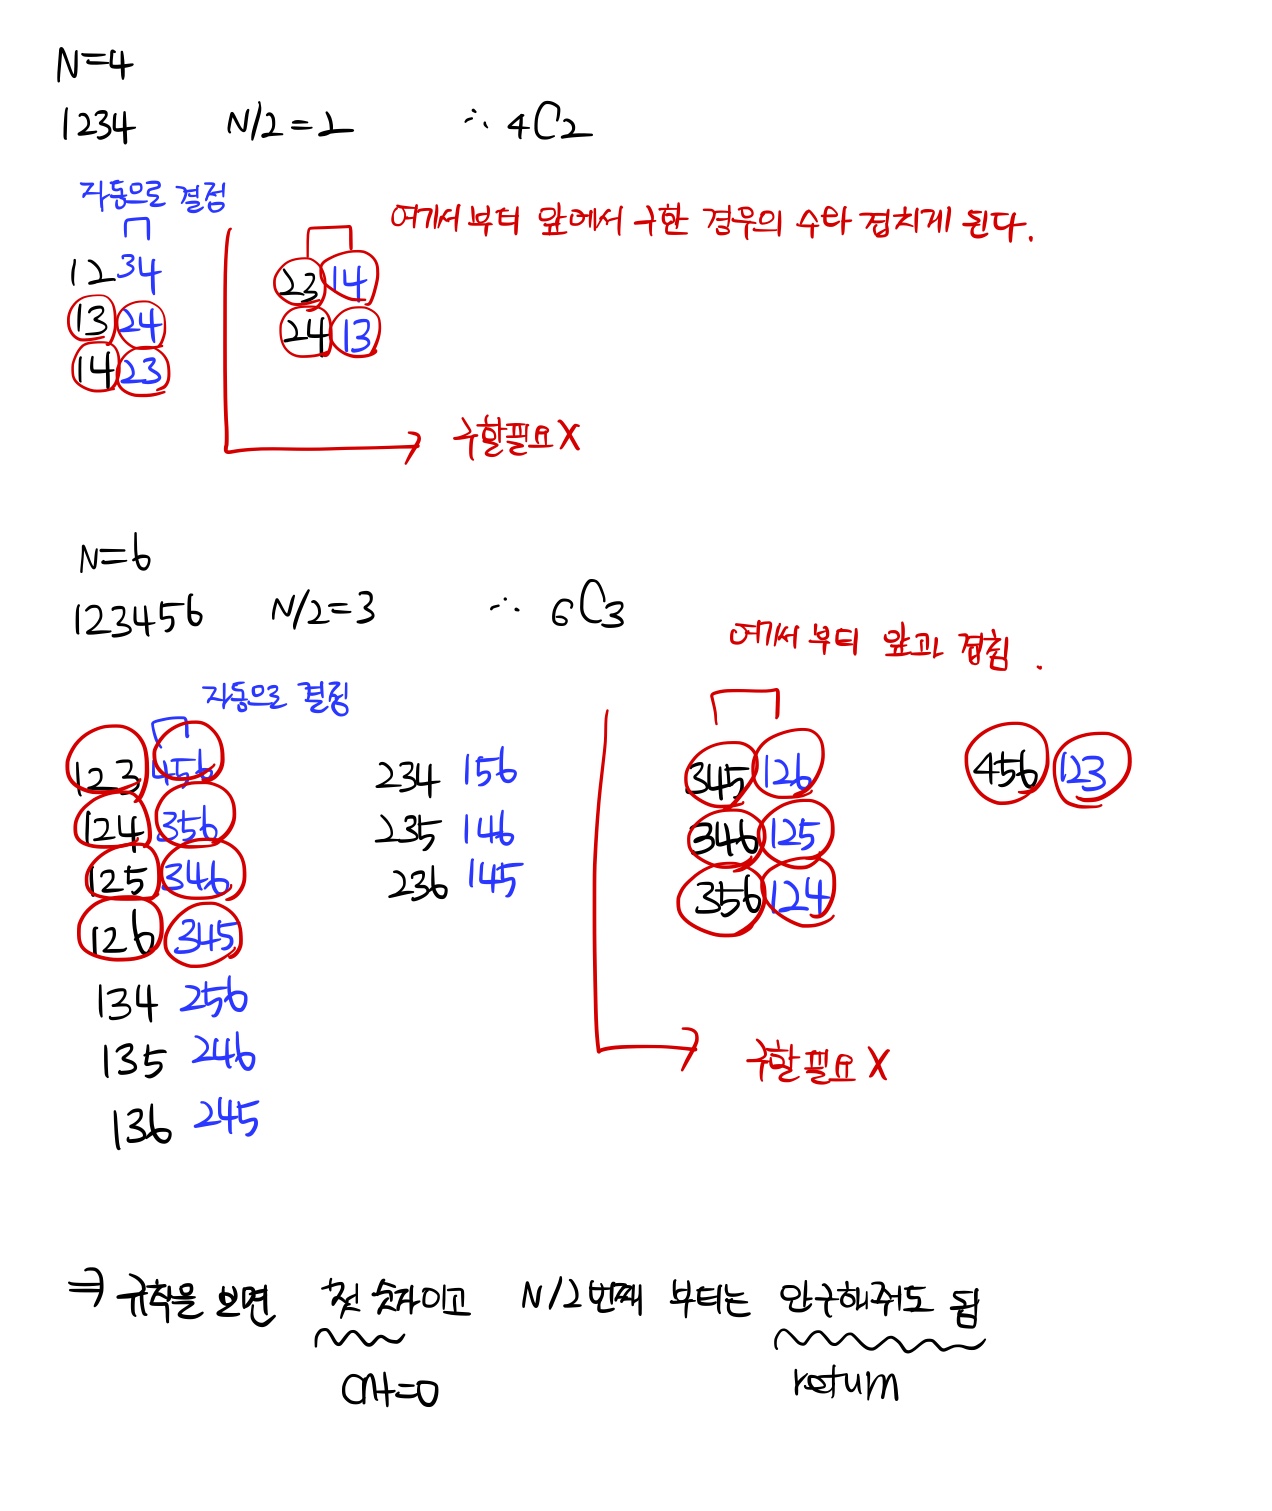 N=4
1234 N/2=2 ∴ 4C2
자동으로 결정
여기서부터 앞에서 구한 경우의 수와 겹치게 된다.
12 34
13 24
14 23
23 14
24 13
구할필요X
N=6
123456 N/2=3 ∴ 6C3
여기서부터 앞과 겹침.
자동으로 결정
123 456
124 356
125 346
126 345
134 256
135 246
136 245
234 156
235 146
236 145
345 126
346 125
356 124
456 123
구할필요X
⇒ 규칙을 보면 첫 숫자이고 N/2번째 부터는 안구해줘도 됨
cnt=0 return